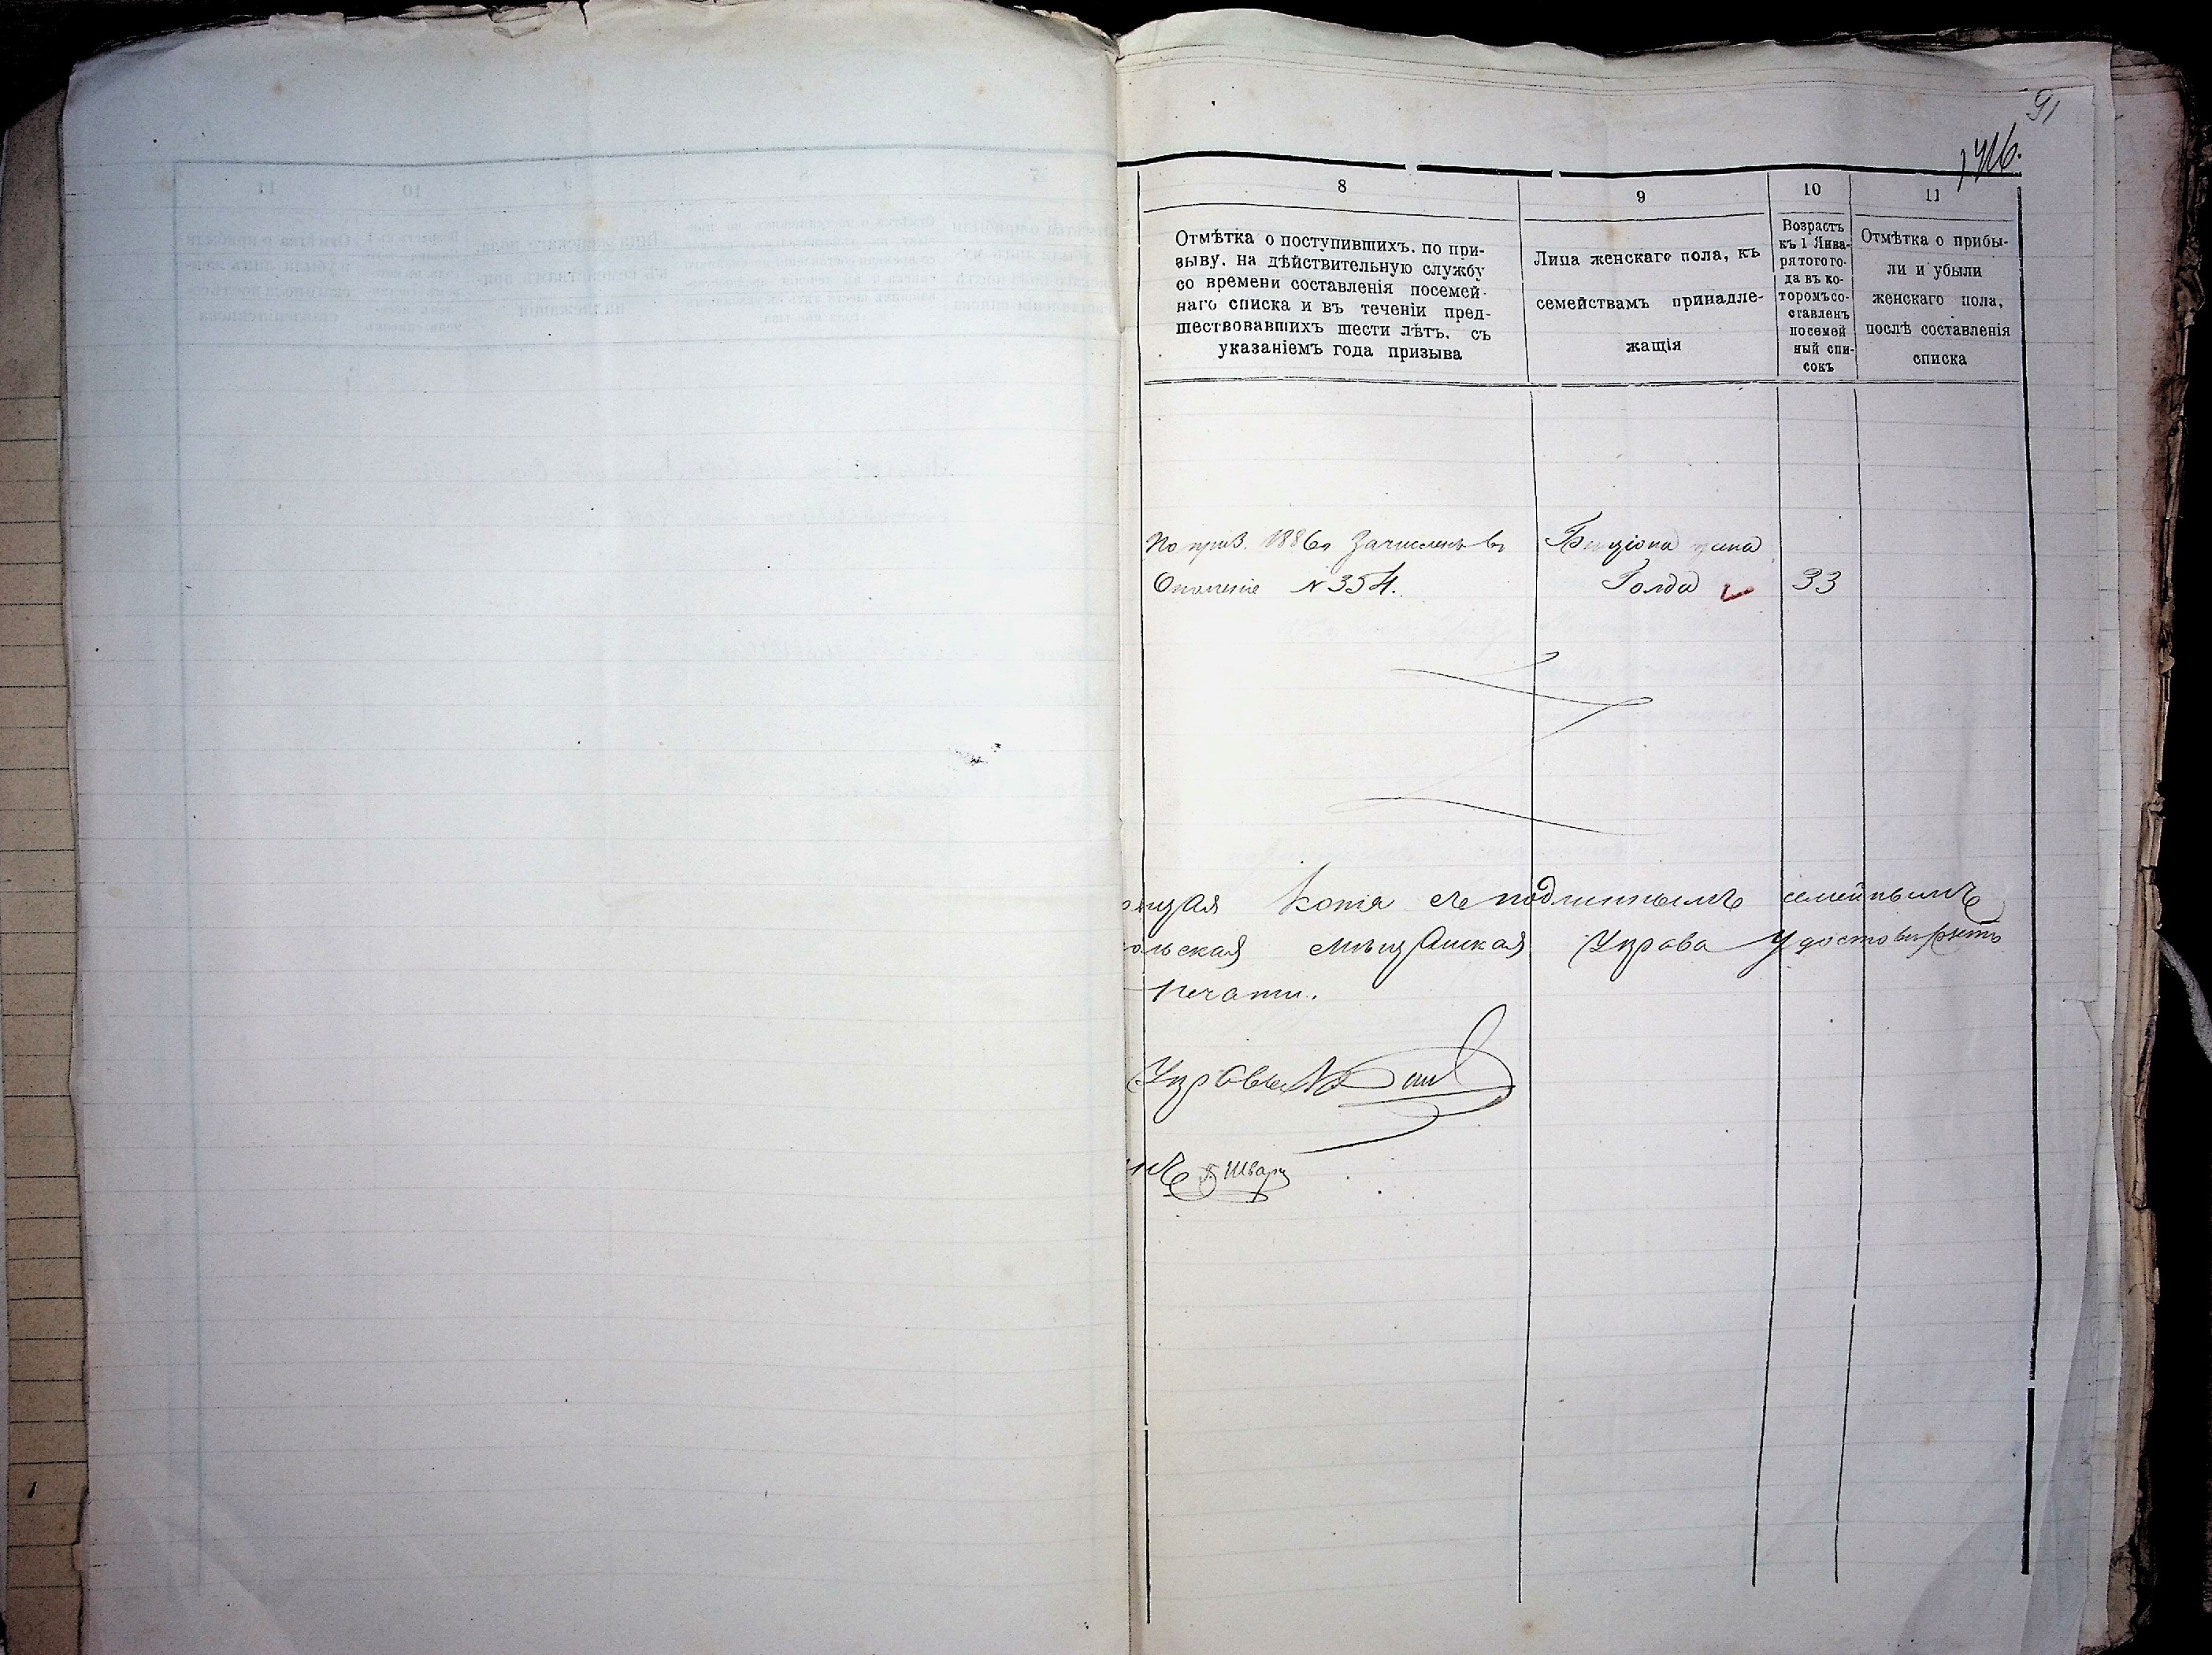 91
8
9
10
11
Отмѣтка о поступившихъ. по при-
зыву. на дѣйствительную службу
со времени составленія посемей-
наго списка и въ теченіи пред-
шествовавшихъ шести лѣтъ. съ
указаніемъ года призыва
Лица женскаго пола, къ
семействамъ принадле-
жащія
Возрастъ
къ 1 Янва-
ря того го-
да въ ко-
торомъ со-
ставленъ
посемей
ный спи-
сокъ
Отмѣтка о прибы-
ли и убыли
женскаго пола,
послѣ составленія
списка
По приз. 1886 г Зачисленъ въ
Ополченіе N 354.
жена
Голда
33
щая Копія съ подлиннымъ семейнымъ
ольская мѣщанская Управа удостовѣряетъ
печати.
Управы
Шварц
1